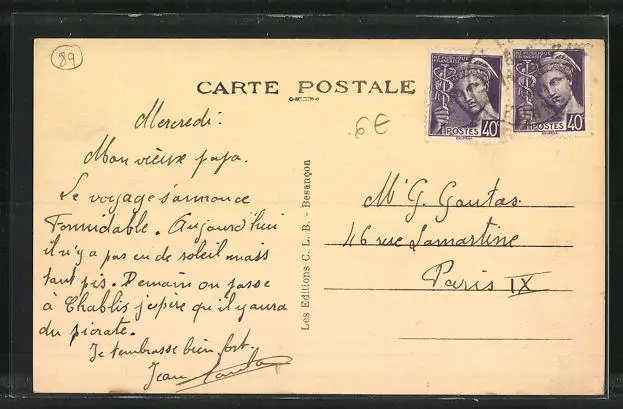 89
CARTE POSTALE
REPUBLIQUE
FRANÇAISE
POSTES 40c
REPUBLIQUE
FRANÇAISE
POSTES 40c
6€
Mercredi.
Mon vieux papa.
Le voyage s'annonce
Formidable. Aujourd'hui
il n'y a pas eu de soleil mais
tant pis. Demain on passe
à Chablis j'espère qu'il y aura
du picrate.
Je t'embrasse bien fort.
Jean
Les Editions C. L. B. - Besançon
Mr G. Goutas.
46 rue Lamartine
Paris IX